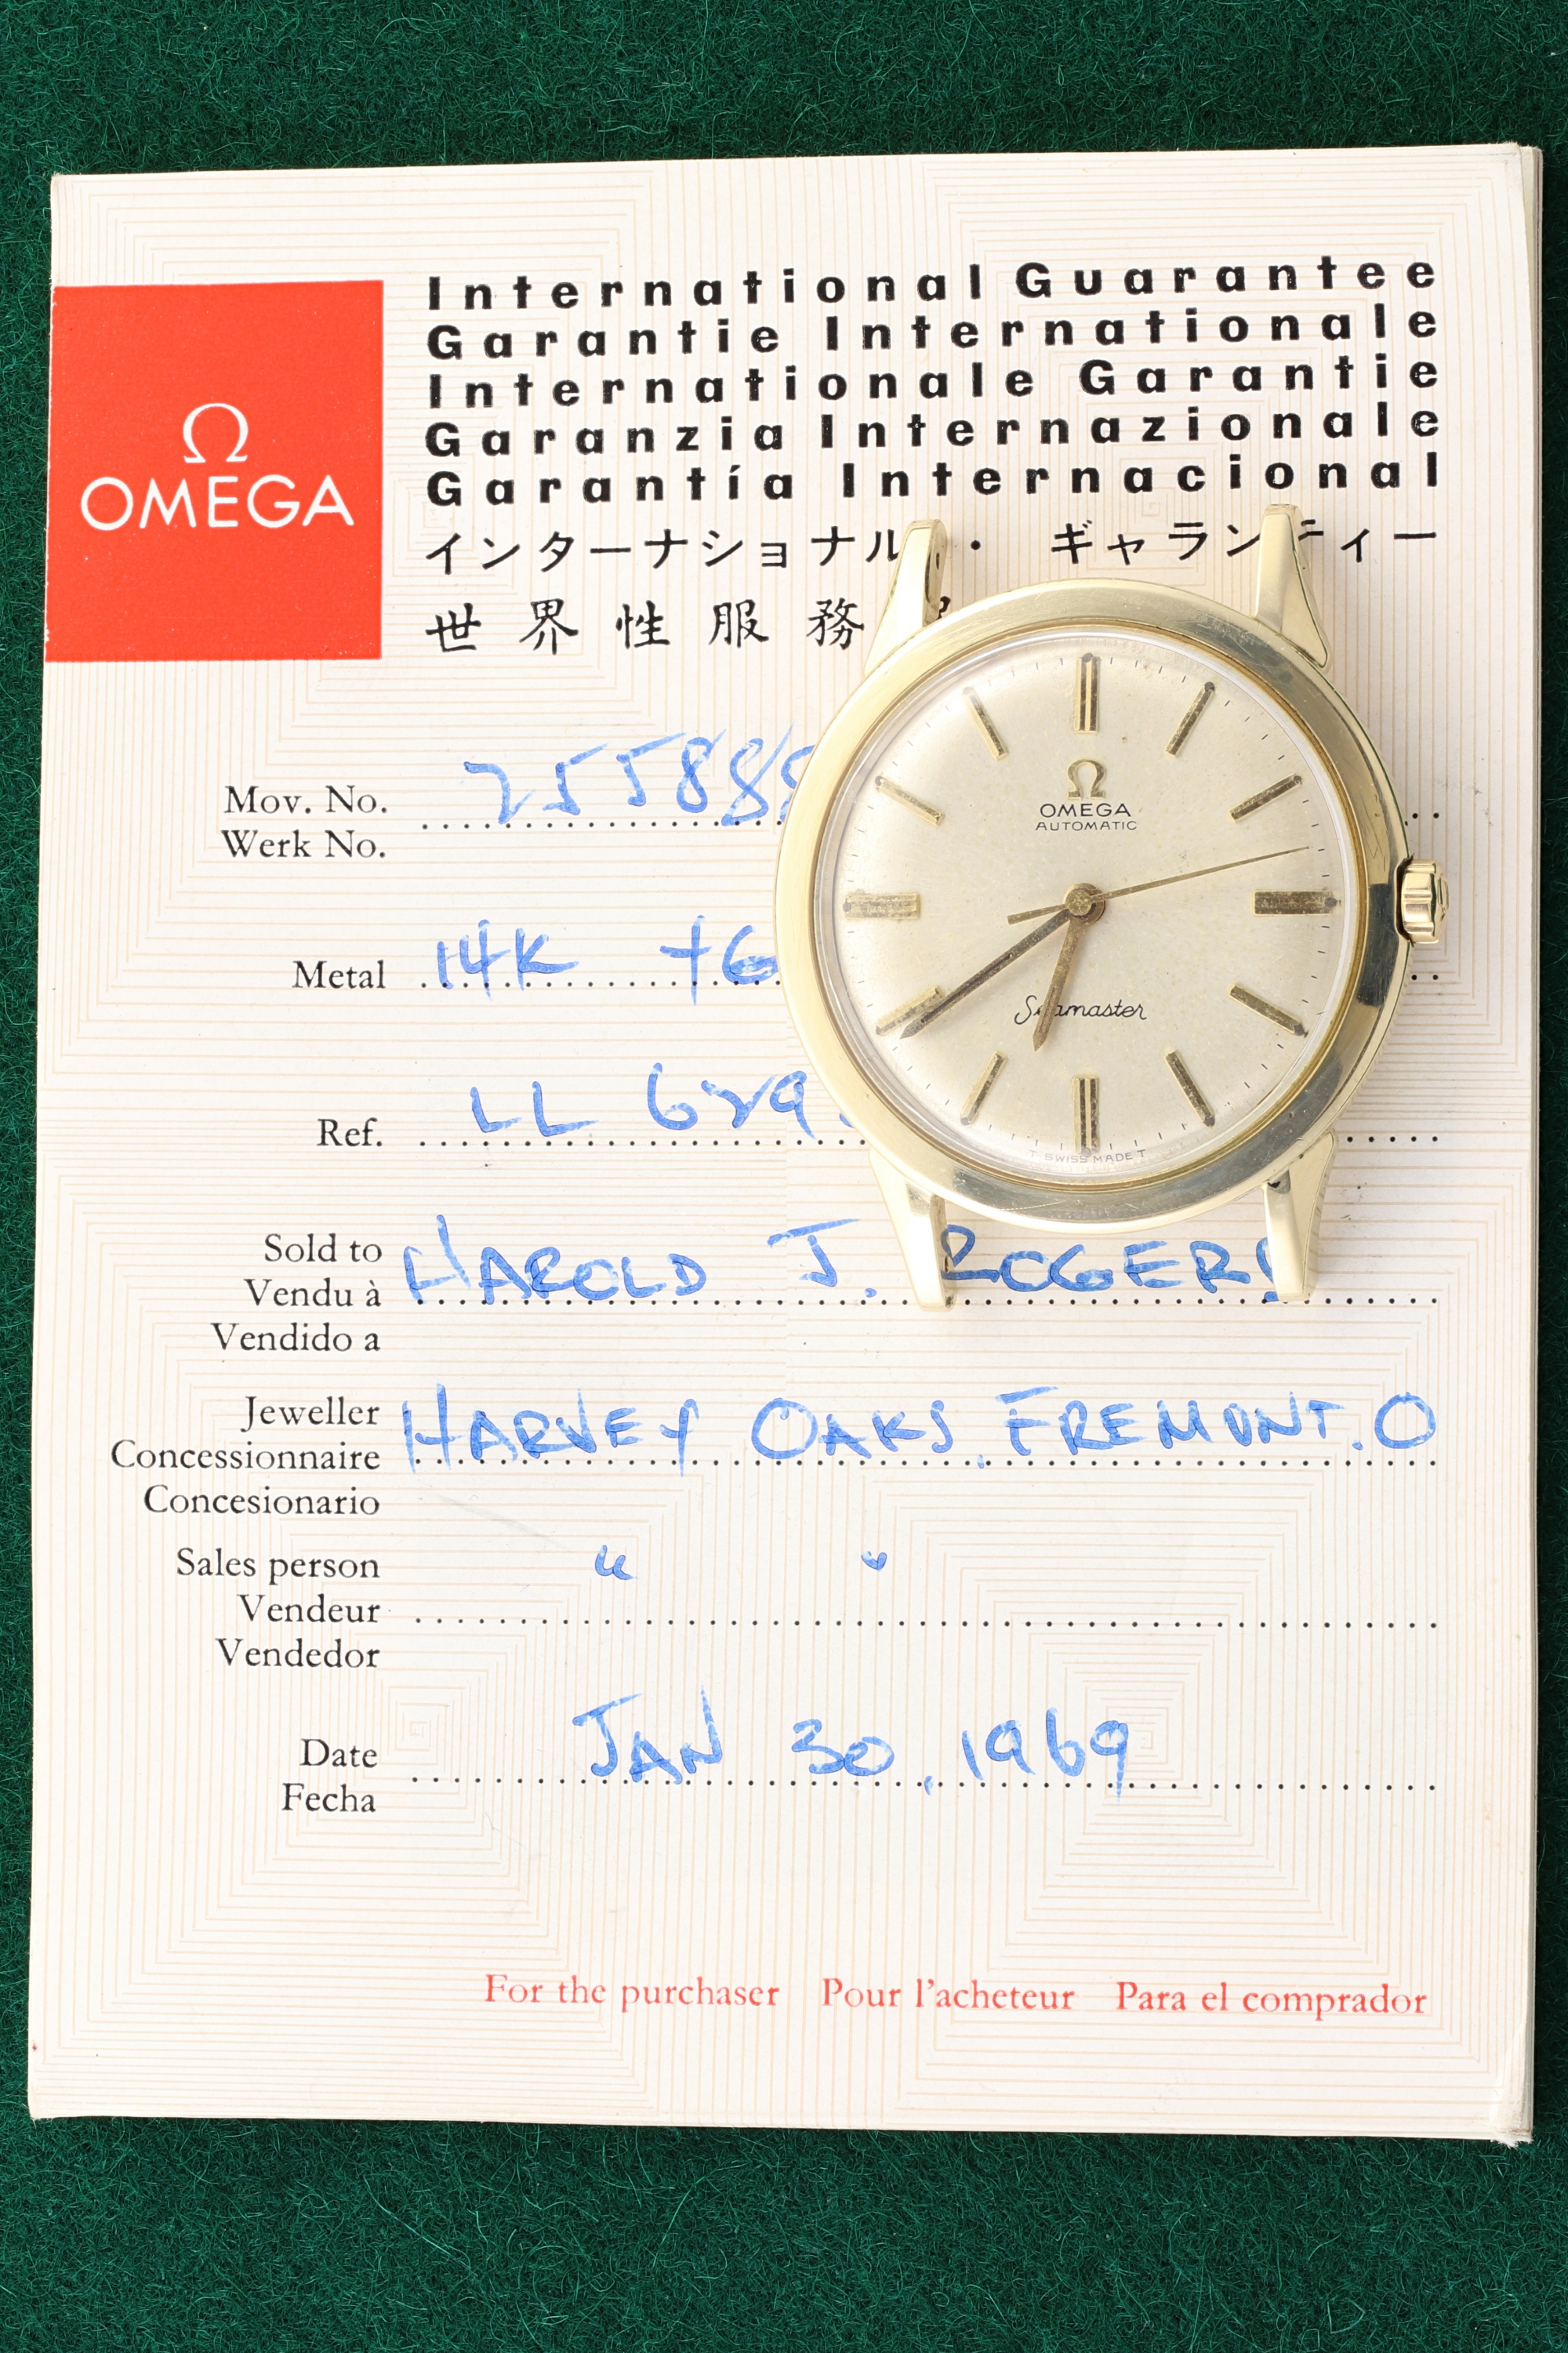 International Guarantee
Garantie Internationale
Internationale Garantie
Garanzia Internazionale
Garantía Internacional
インターナショナル・ ギャランティー
世界性服務
Ω
OMEGA
Mov. No.
Werk No.
Metal 14K
Ref. LL
Ω
OMEGA
AUTOMATIC
Seamaster
T SWISS MADE T
Sold to
Vendu à HAROLD J. ROGERS
Vendido a
Jeweller
Concessionnaire HARVEY OAKS, FREMONT. O
Concesionario
Sales person " "
Vendeur
Vendedor
Date JAN 30, 1969
Fecha
For the purchaser Pour l'acheteur Para el comprador